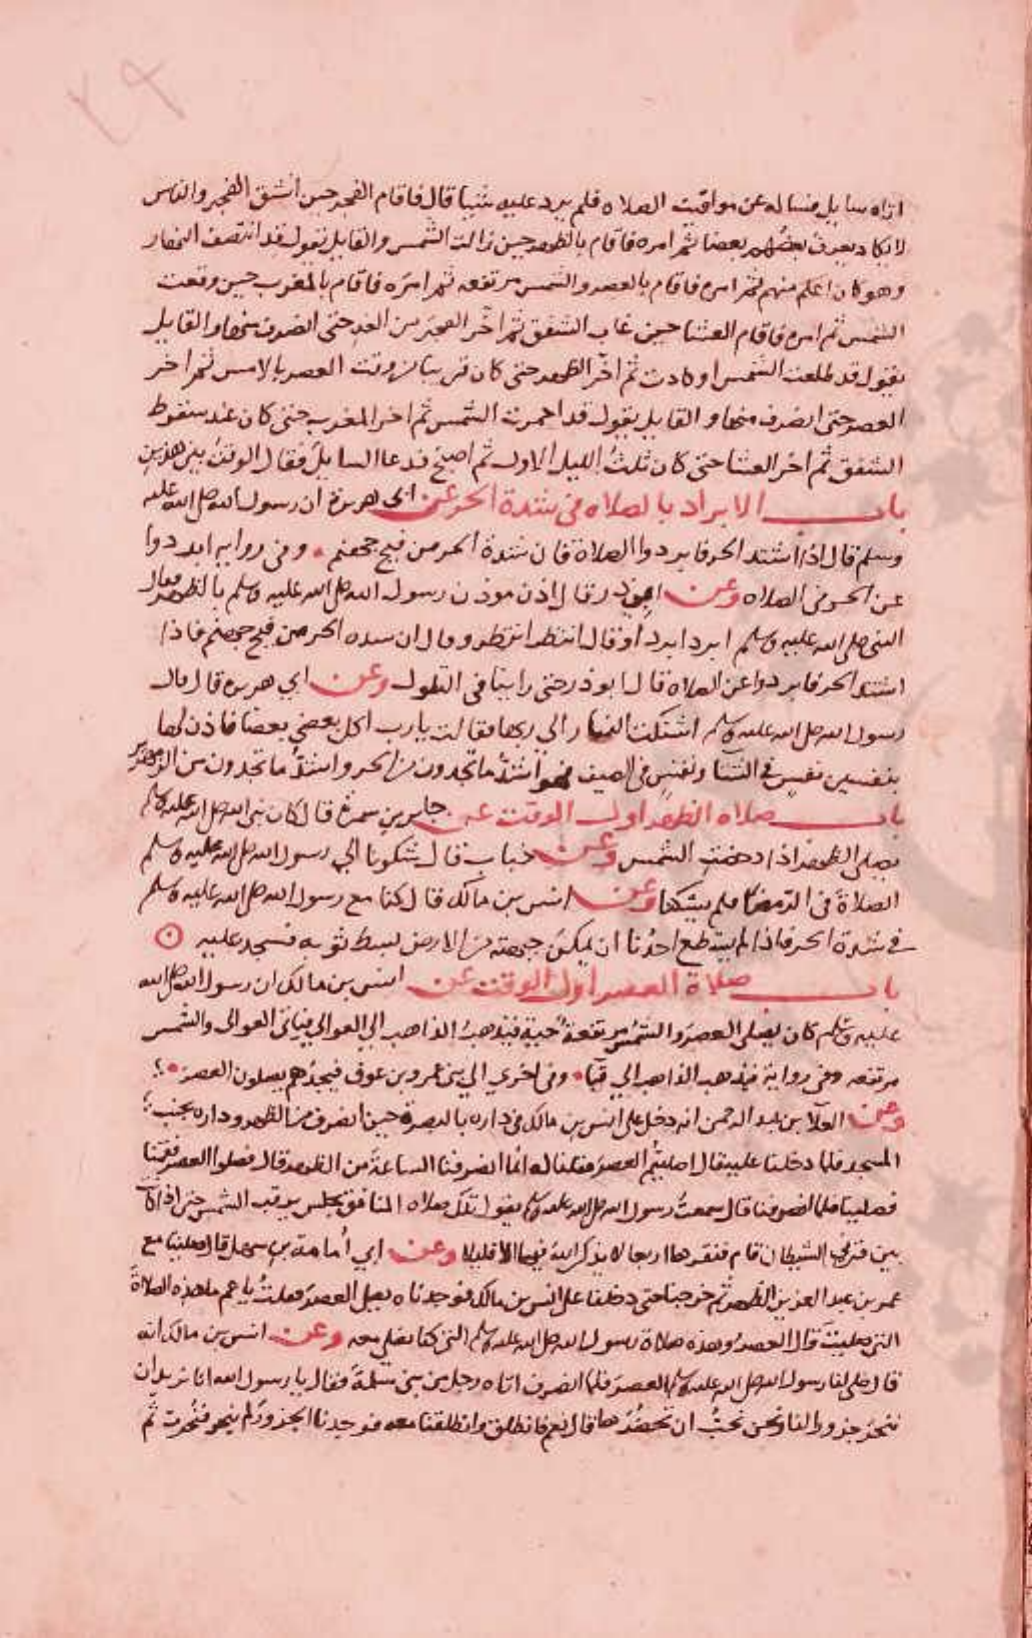 ٢٩
اتاه سايل فساله عن مواقيت الصلاه فلم يرد عليه شيئا قال فاقام الفجر حين انشق الفجر والناس
لا يكاد يعرف بعضهم بعضا ثم امره فاقام بالظهر حين زالت الشمس والقايل يقول قد انتصف النهار
وهو كان اعلم منهم ثم امره فاقام بالعصر والشمس مرتفعه ثم امره فاقام بالمغرب حين وقعت
الشمس ثم امره فاقام العشا حين غاب الشفق ثم اخر الفجر من الغد حتى انصرف منها والقايل
يقول قد طلعت الشمس او كادت ثم اخر الظهر حتى كان قريبا من وقت العصر بالامس ثم اخر
العصر حتى انصرف منها و القايل يقول قد احمرت الشمس ثم اخر المغرب حتى كان عند سقوط
الشفق ثم اخر العشا حتى كان ثلث الليل الاول ثم اصبح فدعا السايل فقال الوقت بين هذين
باب الابراد بالصلاه في شدة الحر عن ابي هريرة ان رسول الله صلى الله عليه
وسلم قال اذا اشتد الحر فابردوا الصلاة فان شدة الحر من فيح جهنم وفي روايه ابردوا
عن الحر في الصلاه وعن ابي ذر قال اذن موذن رسول الله صلى الله عليه وسلم بالظهر فقال
النبي صلى الله عليه وسلم ابرد ابرد او قال انتظر انتظر وقال ان شده الحر من فيح جهنم فاذا
اشتد الحر فابردوا عن الصلاة قال ابو ذر حتى راينا في التلول وعن ابي هريره قال قال
رسول الله صلى الله عليه وسلم اشتكت النار الي ربها فقالت يارب اكل بعضي بعضا فاذن لها
بنفسين نفس في الشتا ونفس في الصيف فهو اشد ما تجدون من الحر واشد ما تجدون من الزمهرير
باب صلاه الظهر اول الوقت عن جابر بن سمرة قال كان نبي الله صلى الله عليه وسلم
يصلي الظهر اذا دحضت الشمس وعن خباب قال شكونا الي رسول الله صلى الله عليه وسلم
الصلاة في الرمضا فلم يشكنا وعن انس بن مالك قال كنا مع رسول الله صلى الله عليه وسلم
في شدة الحر فاذا لم يستطع احدنا ان يمكن جبهته من الارض بسط ثوبه فسجد عليه
باب صلاة العصر اول الوقت عن انس بن مالك ان رسول الله صلى الله
عليه وسلم كان يصلي العصر والشمس مرتفعة حية فيذهب الذاهب الي العوالي فياتي العوالي والشمس
مرتفعه وفي رواية فيذهب الذاهب الي قبا وفي اخري الي بني عمرو بن عوف فيجدهم يصلون العصر
وعن العلا بن عبد الرحمن انه دخل على انس بن مالك في داره بالبصرة حين انصرف من الظهر وداره بجنب
المسجد فلما دخلنا عليه قال اصليتم العصر فقلنا له انما انصرفنا الساعة من الظهر قال فصلوا العصر فقمنا
فصلينا فلما انصرفنا قال سمعت رسول الله صلى الله عليه وسلم يقول تلك صلاه المنافق يجلس يرقب الشمس حتى اذا كانت
بين قرني الشيطان قام فنقرها اربعا لا يذكر الله فيها الا قليلا وعن ابي امامة بن سهل قال صلينا مع
عمر بن عبد العزيز الظهر ثم خرجنا حتى دخلنا على انس بن مالك فوجدناه يصلي العصر فقلت يا عم ما هذه الصلاة
التي صليت قال العصر وهذه صلاة رسول الله صلى الله عليه وسلم التي كنا نصلي معه وعن انس بن مالك انه
قال صلى لنا رسول الله صلى الله عليه وسلم العصر فلما انصرف اتاه رجل من بني سلمة فقال يا رسول الله انا نريد ان
ننحر جزورا لنا ونحن نحب ان تحضرها قال نعم فانطلق وانطلقنا معه فوجدنا الجزور لم ينحر فنحرت ثم